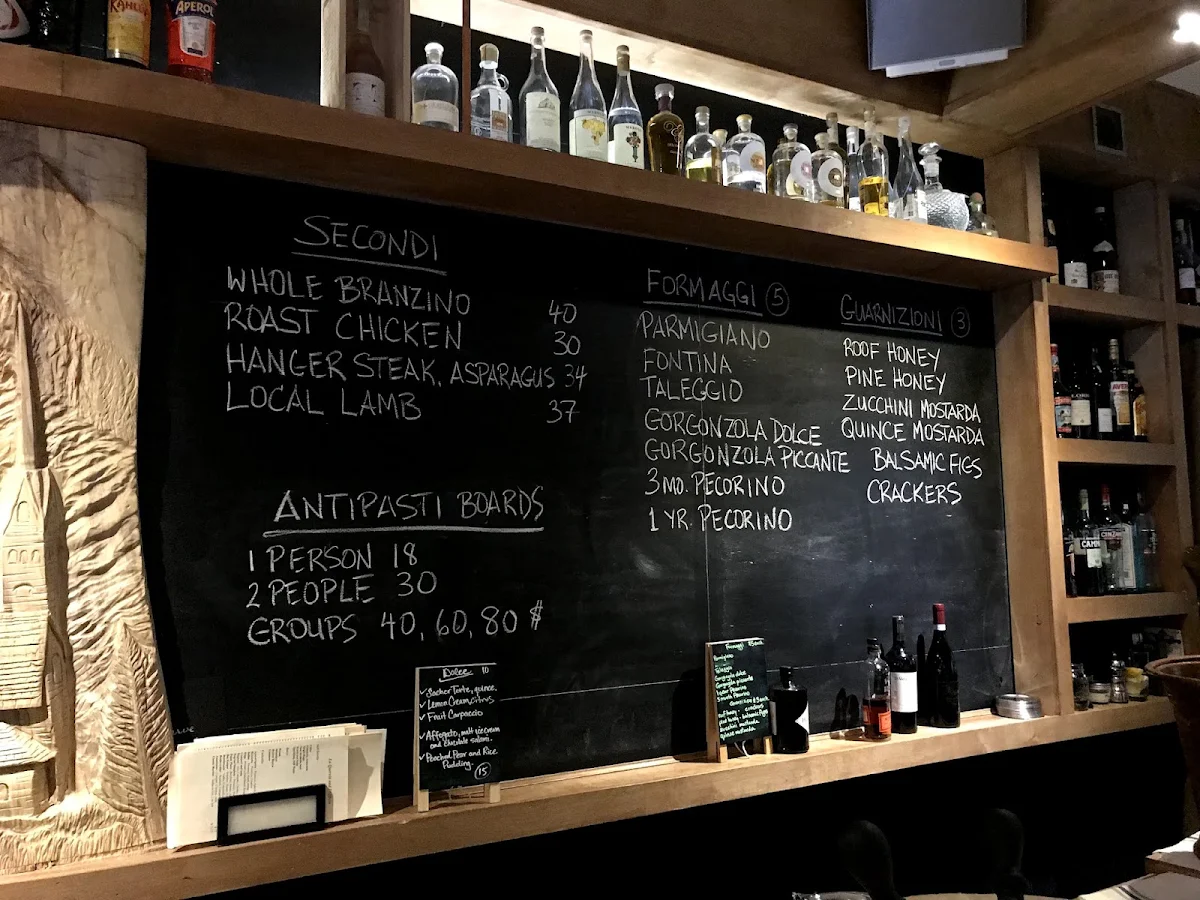 APEROL
SECONDI
WHOLE BRANZINO 40
ROAST CHICKEN 30
HANGER STEAK, ASPARAGUS 34
LOCAL LAMB 37
ANTIPASTI BOARDS
1 PERSON 18
2 PEOPLE 30
GROUPS 40, 60, 80 $
FORMAGGI 5
PARMIGIANO
FONTINA
TALEGGIO
GORGONZOLA DOLCE
GORGONZOLA PICCANTE
3 MO. PECORINO
1 YR. PECORINO
GUARNIZIONI 3
ROOF HONEY
PINE HONEY
ZUCCHINI MOSTARDA
QUINCE MOSTARDA
BALSAMIC FIGS
CRACKERS
Dolce 10
Sacher Torte, quince.
Lemon Cream, citrus
Fruit Carpaccio
Affogato, malt ice cream
and chocolate salami.
Poached Pear and Rice
Pudding.
15
Formaggi
Taleggio
Gorgonzola dolce
Gorgonzola piccante